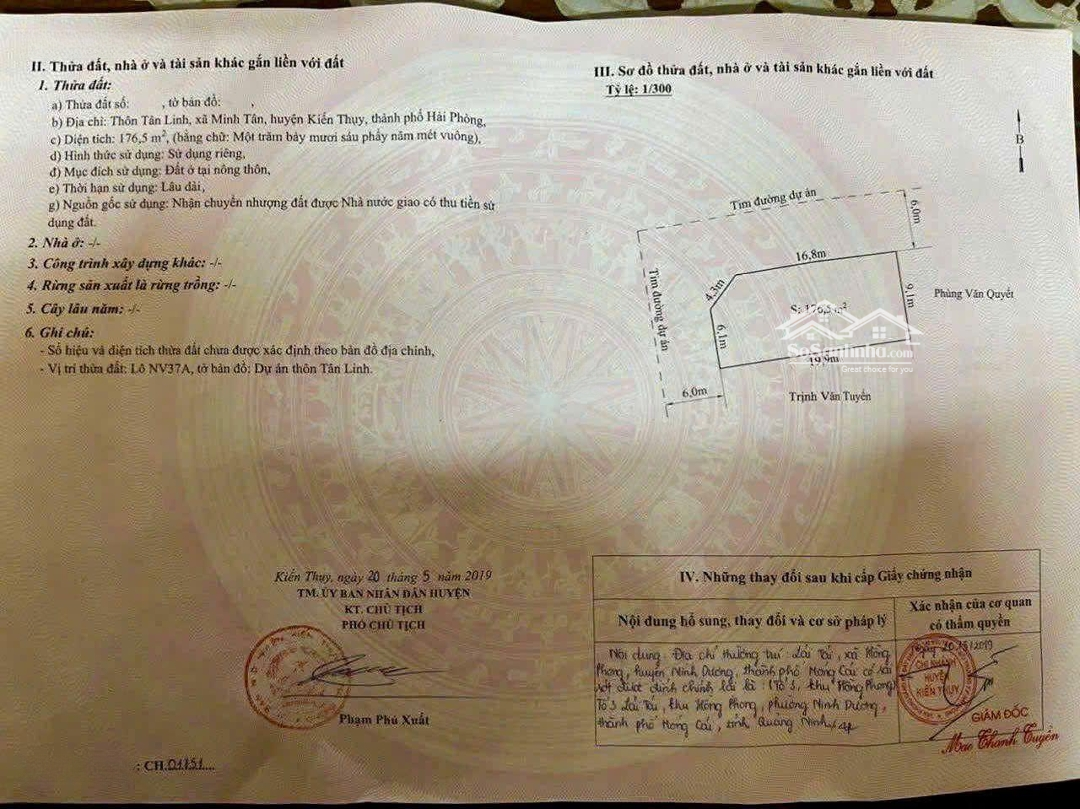 II. Thửa đất, nhà ở và tài sản khác gắn liền với đất
1. Thửa đất:
a) Thửa đất số: , tờ bản đồ: ,
b) Địa chỉ: Thôn Tân Linh, xã Minh Tân, huyện Kiến Thụy, thành phố Hải Phòng,
c) Diện tích: 176,5 m², (bằng chữ: Một trăm bảy mươi sáu phẩy năm mét vuông),
d) Hình thức sử dụng: Sử dụng riêng,
đ) Mục đích sử dụng: Đất ở tại nông thôn,
e) Thời hạn sử dụng: Lâu dài,
g) Nguồn gốc sử dụng: Nhận chuyển nhượng đất được Nhà nước giao có thu tiền sử
dụng đất.
2. Nhà ở: -/-
3. Công trình xây dựng khác: -/-
4. Rừng sản xuất là rừng trồng: -/-
5. Cây lâu năm: -/-
6. Ghi chú:
- Số hiệu và diện tích thửa đất chưa được xác định theo bản đồ địa chính,
- Vị trí thửa đất: Lô NV37A, tờ bản đồ: Dự án thôn Tân Linh.
Kiến Thụy, ngày 20 tháng 5 năm 2019
TM. ỦY BAN NHÂN DÂN HUYỆN
KT. CHỦ TỊCH
PHÓ CHỦ TỊCH
Phạm Phú Xuất
: CH.01751....
III. Sơ đồ thửa đất, nhà ở và tài sản khác gắn liền với đất
Tỷ lệ: 1/300
B
Tim đường dự án
6,0m
16,8m
4,3m
Tim đường dự án
6,1m
S: 176,5 m²
9,1m
Phùng Văn Quyết
19,9m
6,0m
Trịnh Văn Tuyển
SoSanhnha.com
Great choice for you
IV. Những thay đổi sau khi cấp Giấy chứng nhận
Nội dung bổ sung, thay đổi và cơ sở pháp lý
Xác nhận của cơ quan
có thẩm quyền
Nội dung: Địa chỉ thường trú: xã Hồng
Phong, huyện Ninh Dương, thành phố Móng Cái có sai
sót được đính chính lại là: (Tổ 3, khu Hồng Phong)
Tổ 3 khu Hồng Phong, phường Ninh Dương,
thành phố Móng Cái, tỉnh Quảng Ninh
CHI NHÁNH
HUYỆN
KIẾN THỤY
GIÁM ĐỐC
Mạc Thanh Tuyền